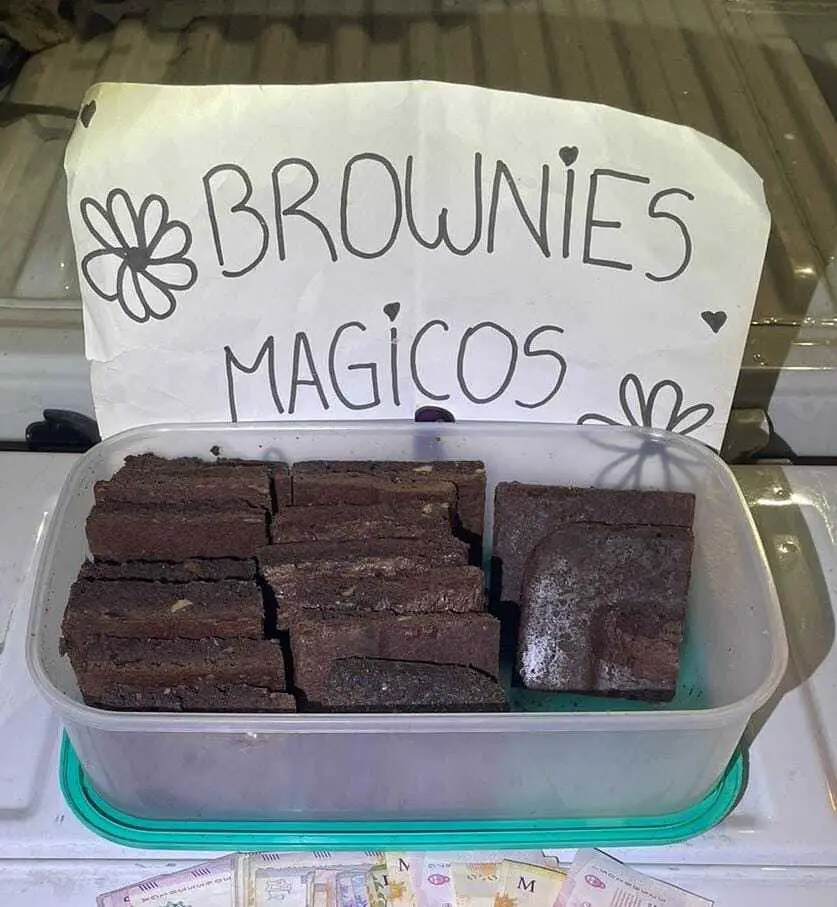 BROWNIES
MAGICOS
M
M